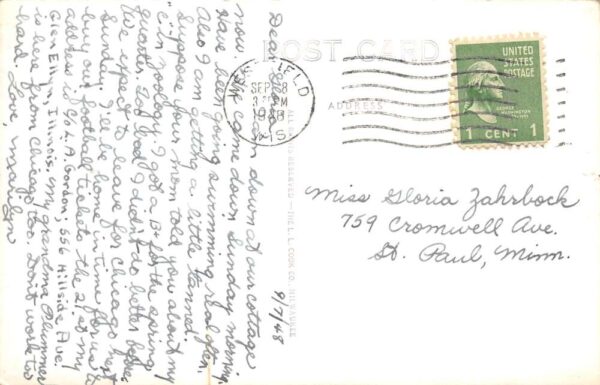 POST CARD
ADDRESS
ALL RIGHTS RESERVED—THE L. L. COOK CO. MILWAUKEE
SEP 8
WIS
UNITED
STATES
POSTAGE
GEORGE
WASHINGTON
1 CENT 1
Miss Gloria Zahrbock
759 Cromwell Ave.
St. Paul, Minn.
9/7/48
Dear Gloria, am down at our cottage
now. We came down Sunday morning.
Have been going swimming real often.
Also I am getting a little tanned.
Suppose your mom told you about my
C in Zoology. I got a B+ for the spring
quarter. Too bad I didn't do better before.
We expect to leave for Chicago next
Sunday. I'll be home in time for us to
buy our football tickets the 21st. My
address is C/o L. A. Gordon, 556 Hillside Ave.,
Glen Ellyn, Illinois. My grandma Plummer
is here from Chicago, too. Don't work too
hard. Love, Marilyn